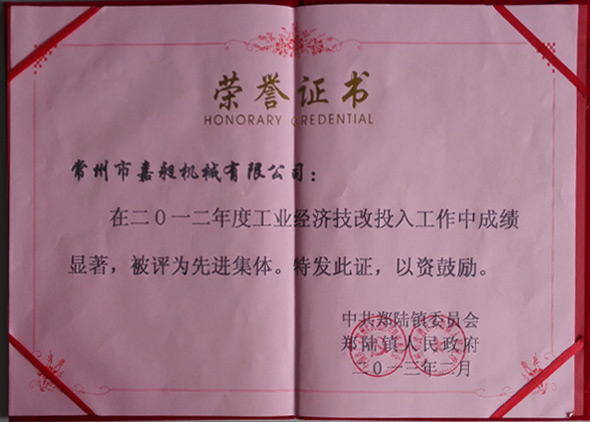 荣誉证书
HONORARY CREDENTIAL
常州市嘉昶机械有限公司：
在二0一二年度工业经济技改投入工作中成绩
显著，被评为先进集体。特发此证，以资鼓励。
中共郑陆镇委员会
郑陆镇人民政府
二0一三年二月